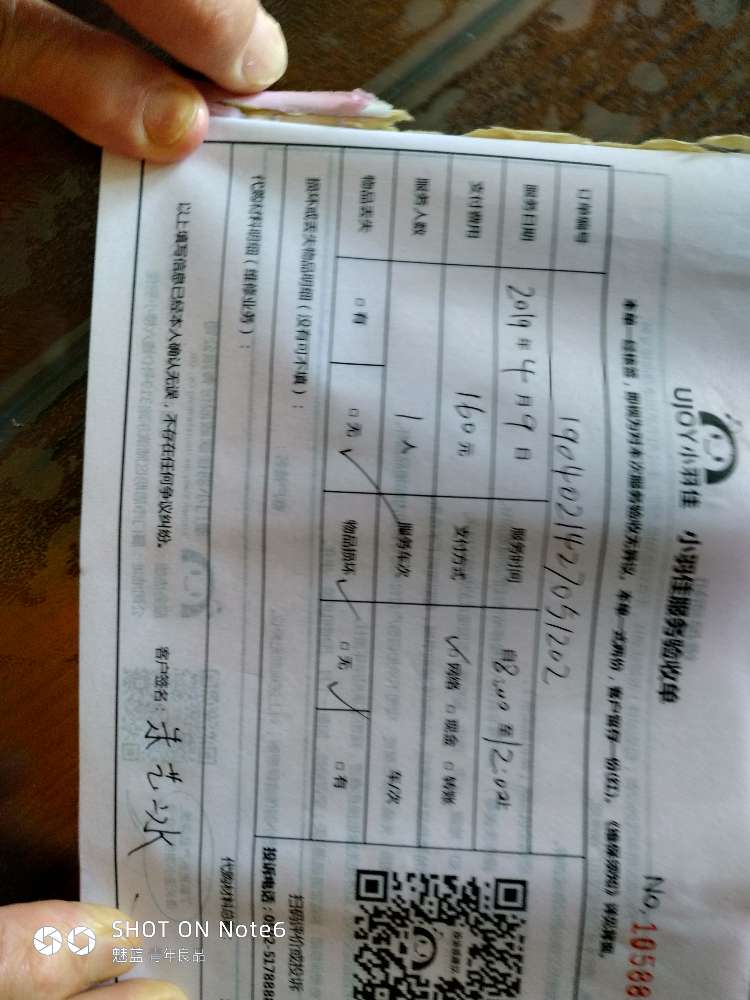 UJOY小羽佳 小羽佳服务验收单
No.10588
本单一经填写，即视为对本次服务验收无异议。本单一式两份，客户留存一份(红)。
订单编号 190402142705 1202
服务日期 2019年4月9日 服务时间 自8:00至12:0时
支付费用 160元 支付方式 ✓网络 □现金 □转账
服务人数 1人 服务车次 车/次
物品丢失 □有 □无✓ 物品损坏 ✓ □无✓ □有
损坏或丢失物品明细（没有可不填）：
代购材料明细（维修业务）：
以上填写信息已经本人确认无误，不存在任何争议纠纷。 客户签名：
扫码评价或投诉
投诉电话：
代购材料
SHOT ON Note6
魅蓝 青年良品